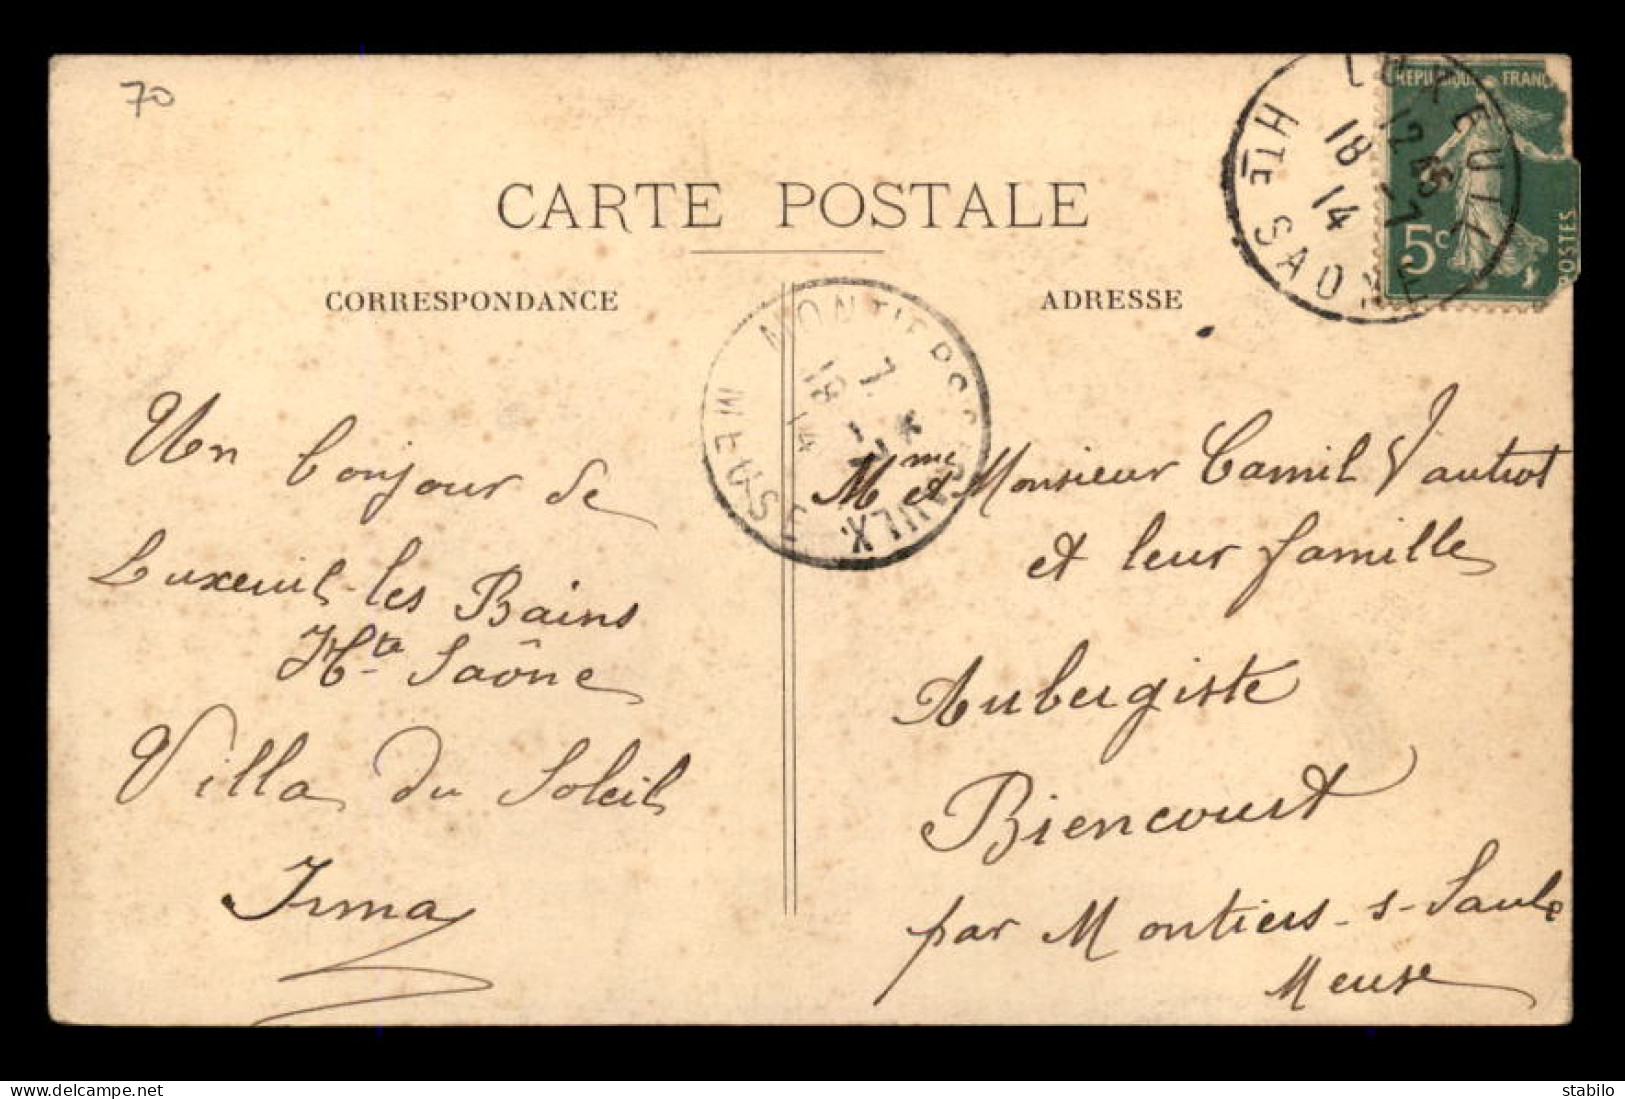 70
CARTE POSTALE
CORRESPONDANCE
Un bonjour de
Luxeuil-les Bains
Hte Saône
Villa du Soleil
Irma
ADRESSE
Mme et Monsieur Camil Vautrot
et leur famille
Aubergiste
Biencourt
par Montiers-s-Saulx
Meuse
LUXEUIL
12 45
18 -7
14
HTE SAONE
REPUBLIQUE FRANÇ
5c
POSTES
MONTIERS
SAULX
7 *
18 - 7
14
MEUSE
delcampe.net
stabilo